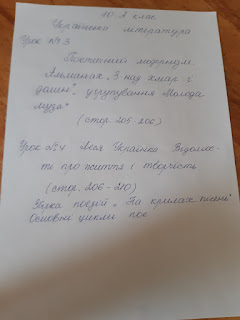 10-А клас
Українська література
Урок №3
Поетичний модернізм.
Альманах „З над хмар і
долин", угрупування „Молода
муза"
(стор. 205-206)
Урок №4 Леся Українка Відомос-
ті про життя і творчість
(стор. 206-210)
Збірка поезій „На крилах пісень"
Основні цикли пое